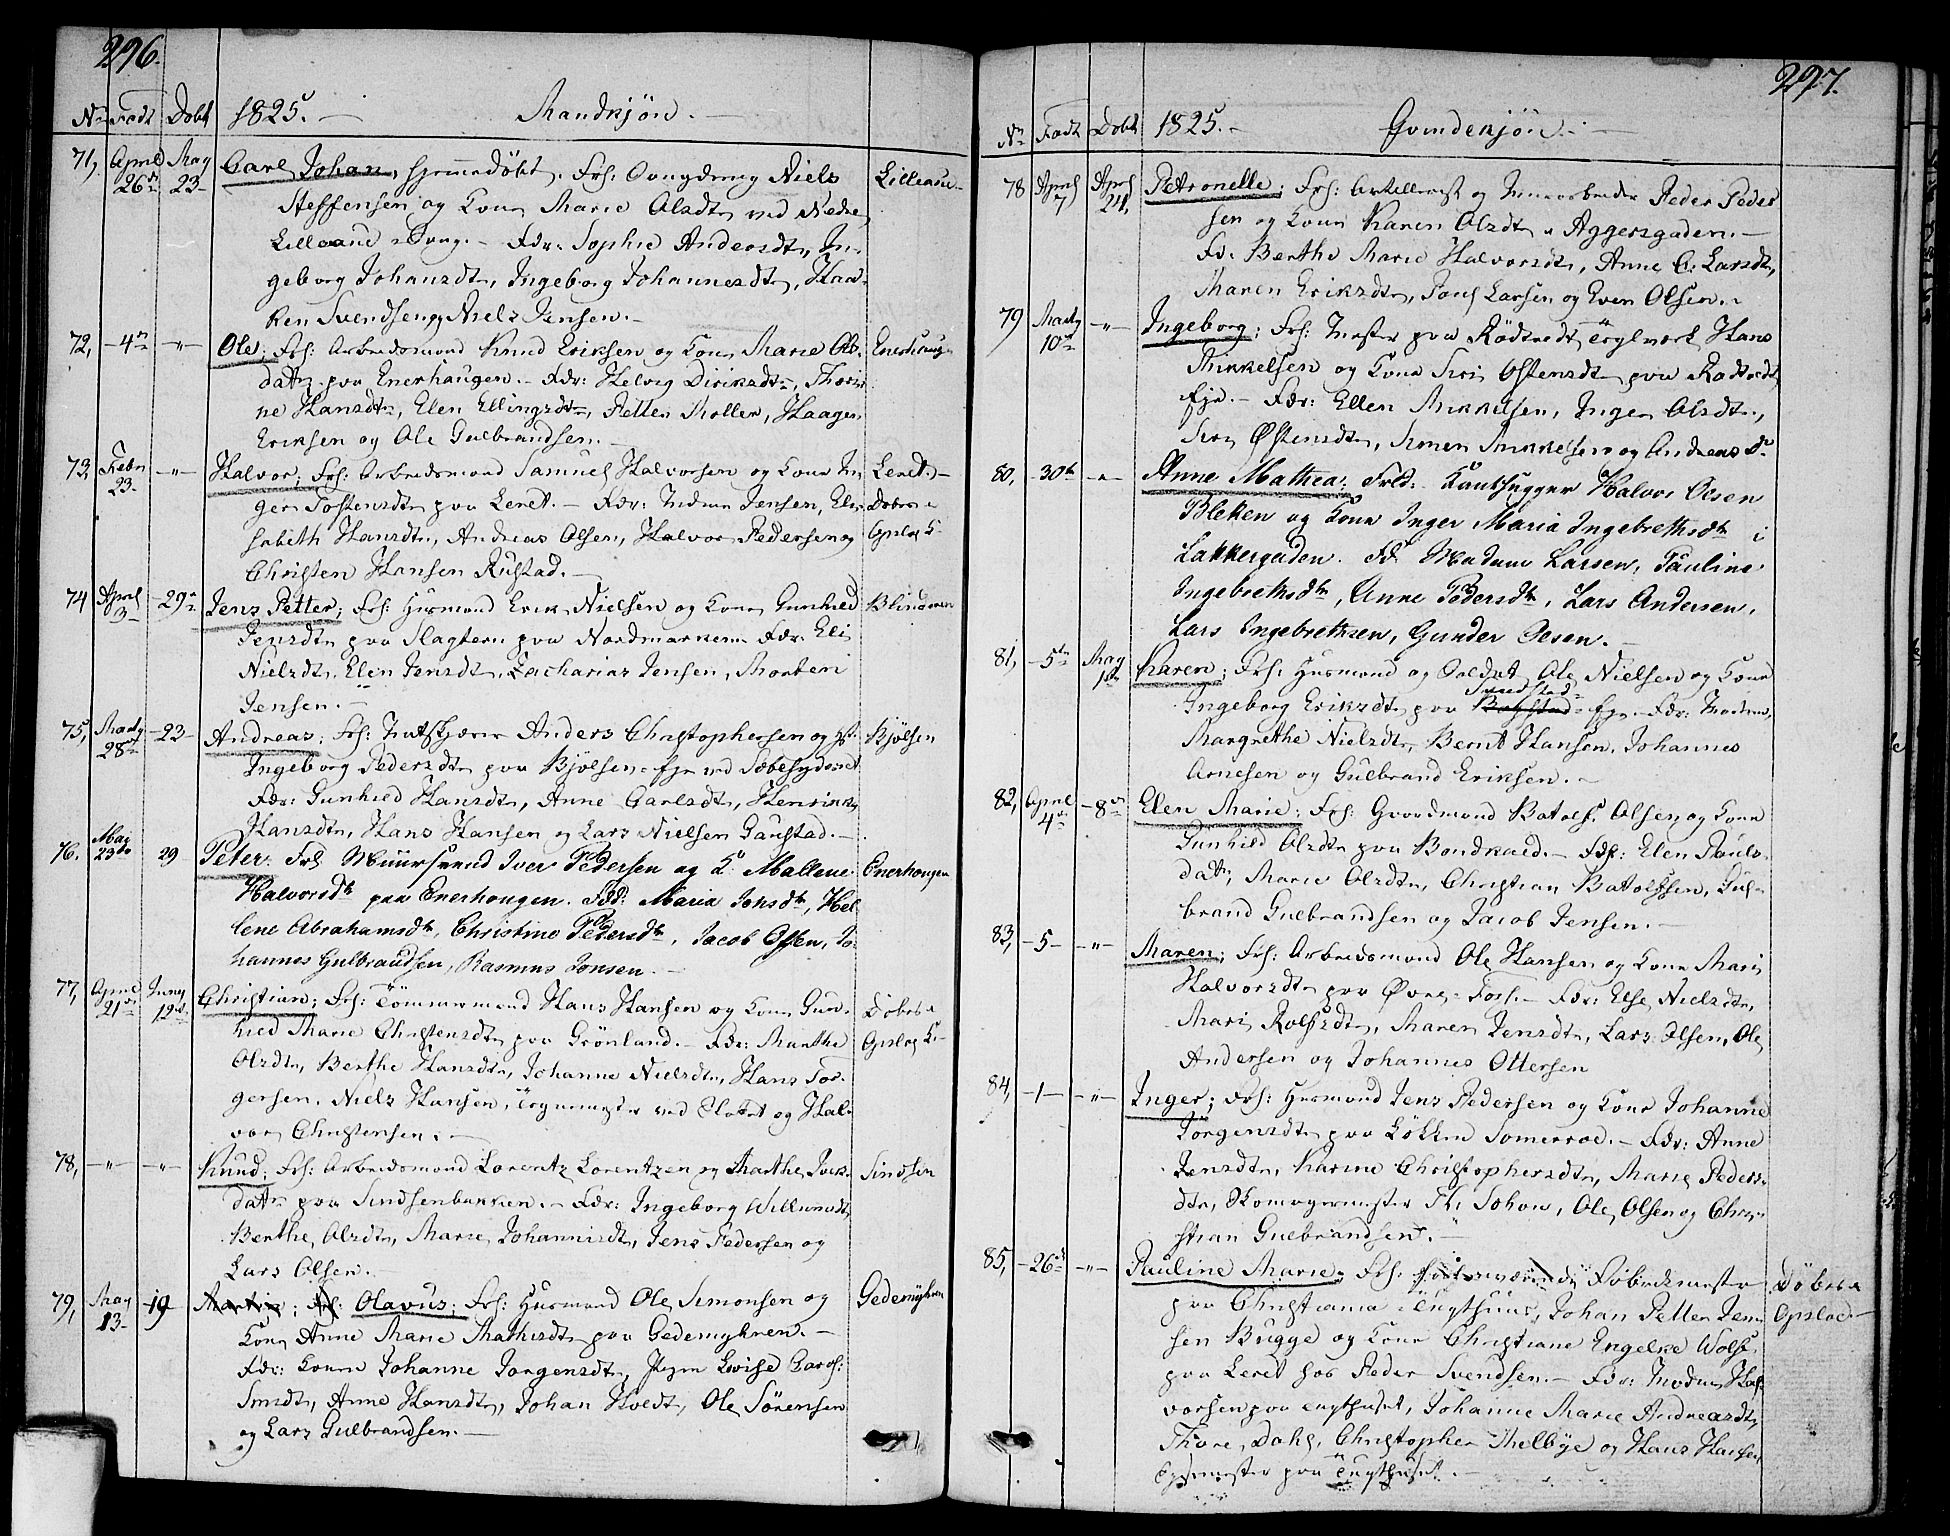 296.
No Födt Döbt 1825. Mandkjön.
71, April 26de May 23 Carl Johan, hjemmedöbt. Frs: Niels Lilleaue
Steffensen og Kone Marie Olsdtr ved Nedre
Lilleaae Fdr: Sophie Andersdtr, In-
geborg Johansdtr, Ingeborg Johannesdtr, Haa-
ken Svendsen og Niels Jensen.
72, 4de " Ole; Frs: Arbeidsmand Knud Eriksen og Kone Marie Ols- Enerhaugen
datr paa Enerhaugen. Fdr: Helvig Diriksdtr, Thori-
ne Hansdtr, Elen Ellingsdtr, Petter Moller, Haagen
Eriksen og Ole Gulbrandsen.
73, Febr 23 " Halvor; Frs: Arbeidsmand Samuel Halvorsen og Kone In- Leret.
ger Tostensdtr paa Leret. Fdr: Jensen, Eli- Döbt i
sabeth Hansdtr, Andreas Olsen, Halvor Pedersen og Opsloe K.
Christen Hansen Rustad.
74 April 3 29de Jens Petter; Frs: Husmand Erik Nielsen og Kone Gunhild Blindern
Jensdtr paa Slagtern paa Nordmarken. Fdr: Eli
Nielsdtr, Elen Jensdtr, Zacharias Jensen, Morten
Jensen.
75, Marty 28de 23 Andreas; Frs: Anders Christophersen og Hst: Kjölsen
Ingeborg Pedersdtr paa Bjölsen eje ved Sæbesyderiet
Fdr: Gunhild Hansdtr, Anne Carlsdtr, Henrikke
Hansdtr, Hans Hansen og Lars Nielsen Gaustad.
76. Mai 23de 29 Peter. Frld Muursvend Iver Pedersen og K. Mallene Enerhougen
Halvorsdtr paa Enerhougen. Fdd: Maria Jonsdtr, Hel-
lene Abrahamsdtr, Christine Pedersdtr, Jacob Olsen, Jo-
hannes Gulbrandsen, Rasmus Jonsen.
77, April 21de Juny 12te Christian; Frs: Tömmermand Hans Hansen og Kone Gun- Döbt i
hild Marie Christensdtr paa Grönland. Fdr: Marthe Opsloe K.
Olsdtr, Berthe Hansdtr, Johanne Nielsdtr, Hans Tor-
gersen, Niels Hansen, ved Slottet og Hal-
vor Christensen.
78, " " Knud; Frs: Arbeidsmand Lorentz Lorentzen og Marthe Sindsen
datr paa Sindsenbakken. Fdr: Ingeborg Willumsdtr
Berthe Olsdtr, Marie Johannisdtr, Jens Pedersen og
Lars Olsen.
79, May 13 19 Martin; Frs: Olavus; Frs: Husmand Ole Simonsen og Gedemyhren
Kone Anne Marie Mathisdtr paa Gedemyhren.
Fdr: Konen Johanne Jörgensdtr, Pigen Lovise Carol:
Smidt, Anne Hansdtr, Johan Hvedt, Ole Sörensen
og Lars Gulbrandsen.
297.
No Födt Döbt 1825. Qvindekjön.
78 April 7 April 24, Petronelle; Frs: Artillerist og Minearbeider Peder Peder-
sen og Kone Karen Olsdtr i Aggersgaden.
Fd. Berthe Marie Halvorsdtr, Anne C: Larsdtr,
Maren Eriksdtr, Poul Larsen og Even Olsen.
79 Marty 10de " Ingeborg; Frs: Mester paa Rödtvedt Teglverk Hans
Mikkelsen og Kone Siri Östensdtr paa Rödtvedt
eje. Fdr: Ellen Mikkelsen, Inger Olsdtr,
Siri Östensdtr, Simen Mikkelsen og Andreas Do
80, 30te " Anne Mathea; Frld: Halvor Olsen
Bleken og Kone Inger Maria Ingebrethsdtr i
Lakkergaden. Fdr Madam Larsen, Pauline
Ingebrethsdtr, Anne Pedersdtr, Lars Andersen,
Lars Ingebrethsen, Gunder Olsen.
81, 5te May 1ste Karen; Frs: Husmand og Soldat Ole Nielsen og Kone
Ingeborg Eriksdtr paa Bogstad eje. Fdr: Madam,
Margrethe Nielsdtr, Bernt Hansen, Johannes
Arnesen og Gulbrand Eriksen.
82, April 4de 8de Elen Marie; Frs: Gaardmand Batolf Olsen og Kone
Gunhild Olsdtr paa Bondkald. Fdr: Elen Pouls-
datr, Marie Olsdtr, Christian Batolfsen, Gul-
brand Gulbrandsen og Jacob Jensen.
83, 5 " Maren; Frs: Arbeidsmand Ole Hansen og Kone Mari
Halvorsdtr paa Övre Foss. Fdr: Else Nielsdtr,
Mari Rolfsdtr, Maren Jensdtr, Lars Olsen, Ole
Andersen og Johannes Ottersen
84, 1 " Inger; Frs: Husmand Jens Pedersen og Kone Johanne
Jörgensdtr paa Lökken Someroe. Fdr: Anne
Jensdtr, Karine Christophersdtr, Marie Peders-
dtr, Skomagermester Johan, Ole Olsen og Chri-
stian Gulbrandsen.
85, 26de " Pauline Marie; Frs:
paa Christiania Tugthuus, Johan Petter Jen- Döbt i
sen Bugge og Kone Christiane Engelke Wolf Opsloe
paa Leret hos Peder Svendsen. Fdr: Madam Hal-
vorsen paa Tugthuset, Johanne Marie Andreasdtr,
Thore Dahl, Christopher Melbye og Hans Hansen
paa Tugthuset.